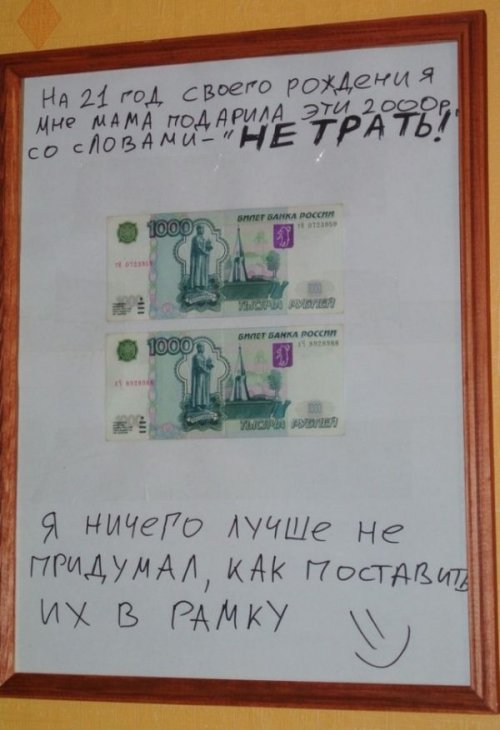 НА 21 ГОД СВОЕГО РОЖДЕНИЯ
МНЕ МАМА ПОДАРИЛА ЭТИ 2000р.
СО СЛОВАМИ – "НЕ ТРАТЬ!"
БИЛЕТ БАНКА РОССИИ
1000
1000
ТЫСЯЧА РУБЛЕЙ
БИЛЕТ БАНКА РОССИИ
1000
1000
ТЫСЯЧА РУБЛЕЙ
Я НИЧЕГО ЛУЧШЕ НЕ
ПРИДУМАЛ, КАК ПОСТАВИТЬ
ИХ В РАМКУ